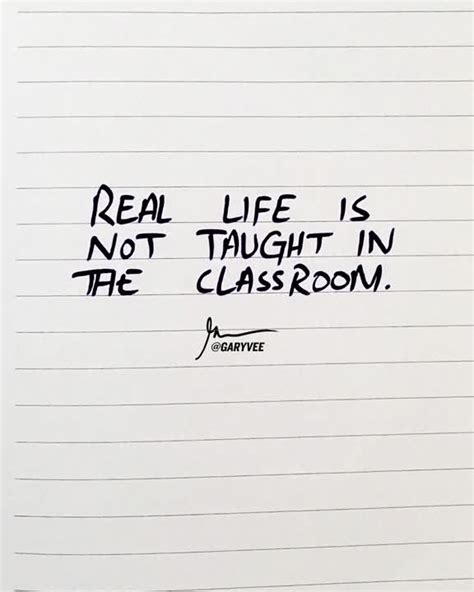 REAL LIFE IS
NOT TAUGHT IN
THE CLASSROOM.
@GARYVEE